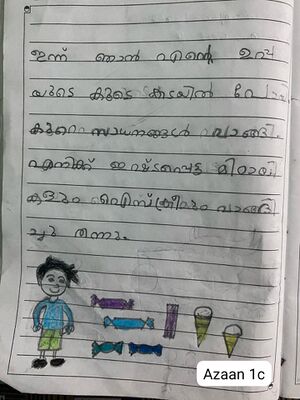 ഇന്ന് ഞാൻ എന്റെ ഉപ്പ
യുടെ കൂടെ കടയിൽ പോ
കുറെ സാധനങ്ങൾ വാങ്ങി.
എനിക്ക് ഇഷ്ടപ്പെട്ട മിഠായി
കളും ഐസ്ക്രീമും വാങ്ങി
ച്ചു തന്നു.
Azaan 1c